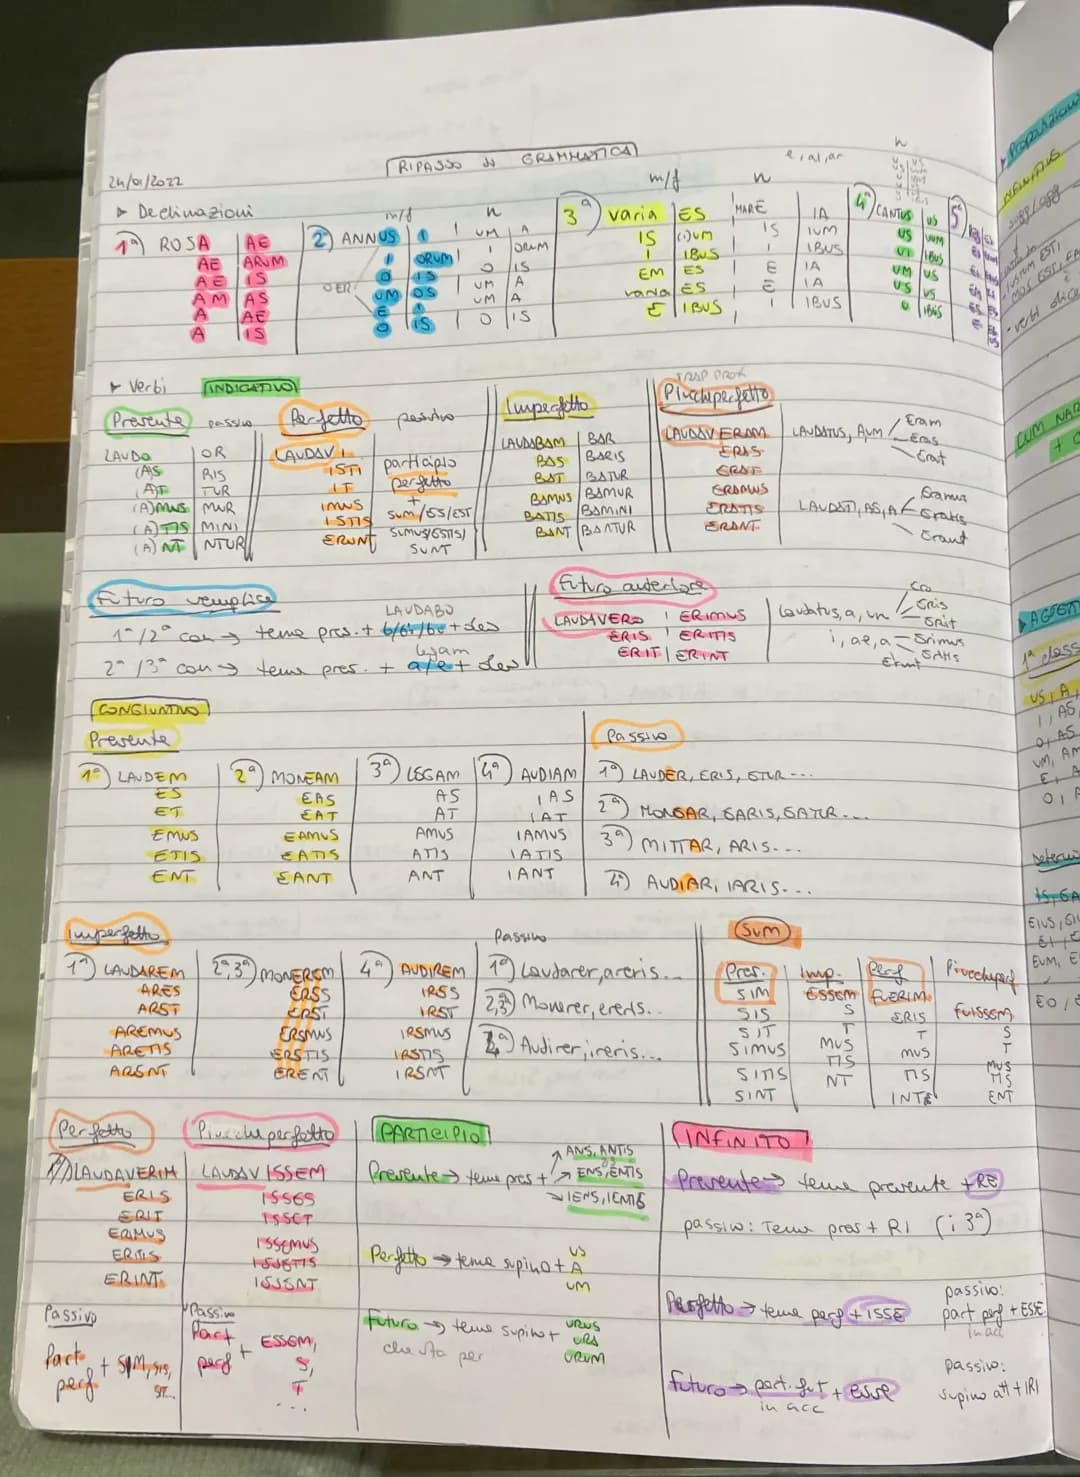 RIPASSO di GRAMMATICA
24/01/2022
▸ Declinazioni
m/f n m/f n e, al, ar n
1ª) ROSA AE
AE ARUM
AE IS
AM AS
A AE
A IS
2) ANNUS I UM A
I ORUM I ORUM
O IS O IS
UM OS UM A
E I UM A
O IS O IS
O ER
3ª) varia ES MARE IA
IS (i)UM IS IUM
I IBUS I IBUS
EM ES E IA
varia ES E IA
E IBUS I IBUS
4ª) CANTUS US
US UUM
UI IBUS
UM US
US US
U IBUS
5ª)
▸ Verbi INDICATIVO
TRAP PROX
Presente passivo Perfetto passivo Imperfetto Piuccheperfetto
LAUDO OR
(A)S RIS
(A)T TUR
(A)MUS MUR
(A)TIS MINI
(A)NT NTUR
LAUDAVI
ISTI
IT
IMUS
ISTIS
ERUNT
participio
perfetto
+
sum/ES/EST
SUMUS/ESTIS/
SUNT
LAUDABAM BAR
BAS BARIS
BAT BATUR
BAMUS BAMUR
BATIS BAMINI
BANT BANTUR
LAUDAVERAM
ERAS
ERAT
ERAMUS
ERATIS
ERANT
LAUDATUS, A, UM Eram
Eras
Erat
LAUDATI, AE, A Eramus
Eratis
Erant
Futuro semplice
LAUDABO
1ª/2ª con → tema pres. + b/bi/bu + des
Legam
2ª/3ª con → tema pres. + a/e + des
Futuro anteriore
LAUDAVERO ERIMUS
ERIS ERITIS
ERIT ERINT
laudatus, a, um Ero
Eris
Erit
i, ae, a Erimus
Eritis
Erunt
CONGIUNTIVO
Presente Passivo
1ª) LAUDEM
ES
ET
EMUS
ETIS
ENT
2ª) MONEAM
EAS
EAT
EAMUS
EATIS
EANT
3ª) LEGAM
AS
AT
AMUS
ATIS
ANT
4ª) AUDIAM
IAS
IAT
IAMUS
IATIS
IANT
1ª) LAUDER, ERIS, ETUR...
2ª) MONEAR, EARIS, EATUR...
3ª) MITTAR, ARIS...
4) AUDIAR, IARIS...
Imperfetto Passivo
1ª) LAUDAREM
ARES
ARET
AREMUS
ARETIS
ARENT
2ª,3ª) MONEREM
ERES
ERET
EREMUS
ERETIS
ERENT
4ª) AUDIREM
IRES
IRET
IREMUS
IRETIS
IRENT
1ª) Laudarer, areris...
2,3) Monerer, ereris...
4ª) Audirer, ireris...
SUM
Pres. Imp. Perf Piuccheperf
SIM
SIS
SIT
SIMUS
SITIS
SINT
ESSEM
S
T
MUS
TIS
NT
FUERIM
ERIS
T
MUS
TIS
INT
FUISSEM
S
T
MUS
TIS
ENT
Perfetto
LAUDAVERIM
ERIS
ERIT
ERIMUS
ERITIS
ERINT
Passivo
Part perf + SIM, SIS, SIT...
Piuccheperfetto
LAUDAVISSEM
ISSES
ISSET
ISSEMUS
ISSETIS
ISSENT
Passivo
Part perf + ESSEM,
S,
T
...
PARTICIPIO
Presente → tema pres + ANS, ANTIS
ENS, ENTIS
IENS, IENTIS
Perfetto → tema supino + US
A
UM
Futuro → tema supino + URUS
URA
URUM
che sta per
INFINITO
Presente → tema presente + RE
passivo: Tema pres + RI (i 3ª)
Perfetto → tema perf + ISSE
passivo:
part perf + ESSE
in acc
Futuro → part. fut + esse
in acc
passivo:
supino att + IRI
CUM NAR
1ª class
US, A,